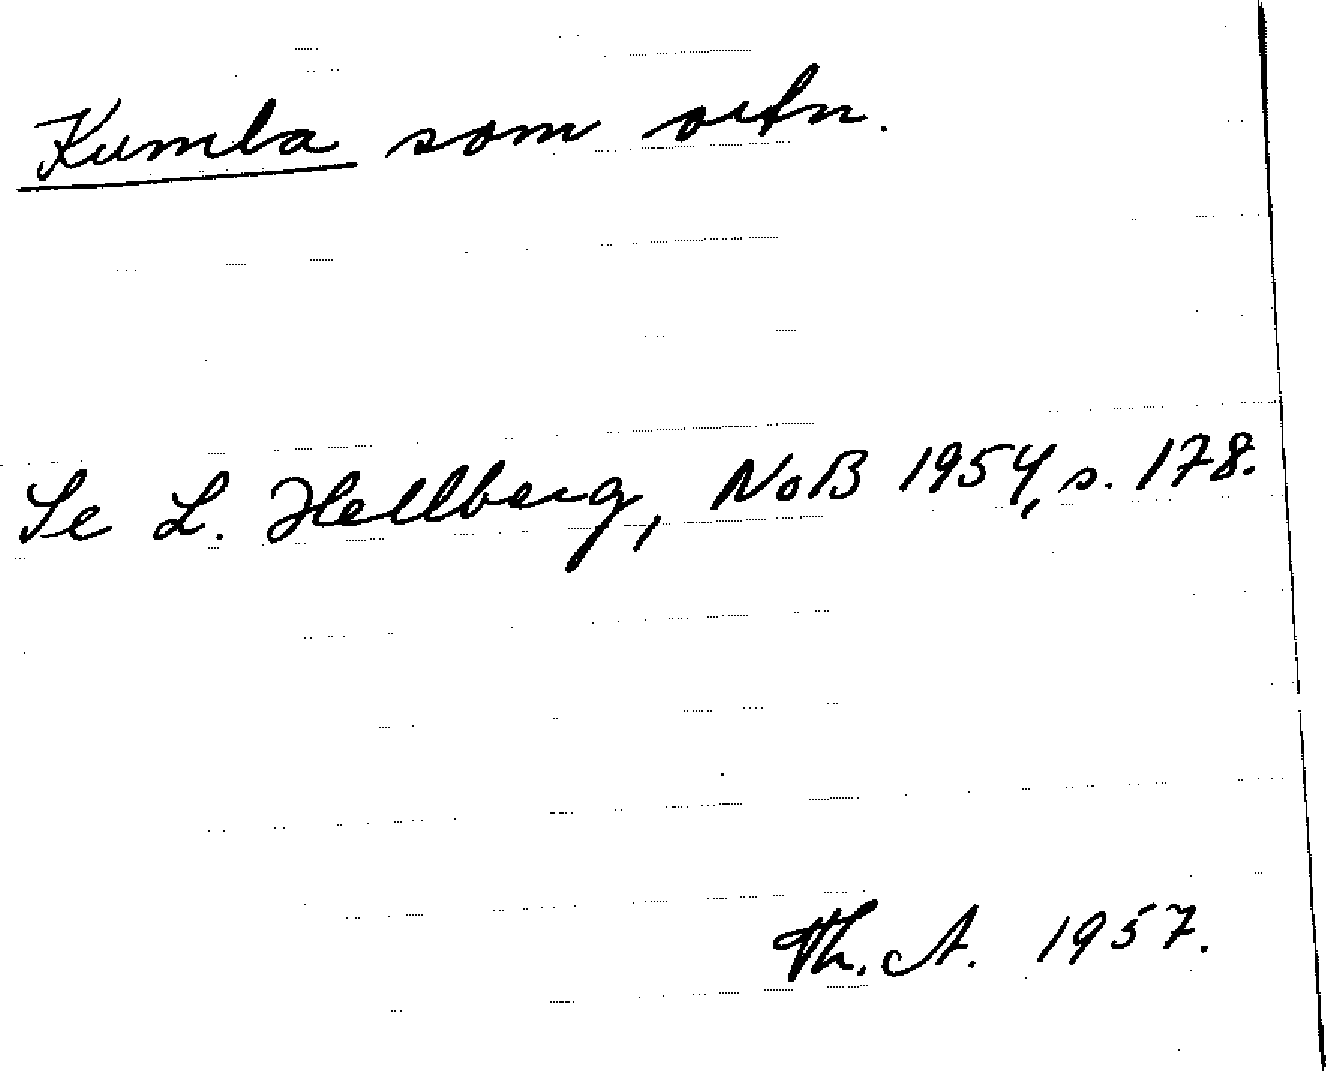 Kumla som ortn.
Se L. Hellberg, NoB 1954, s. 178.
Th. A. 1957.